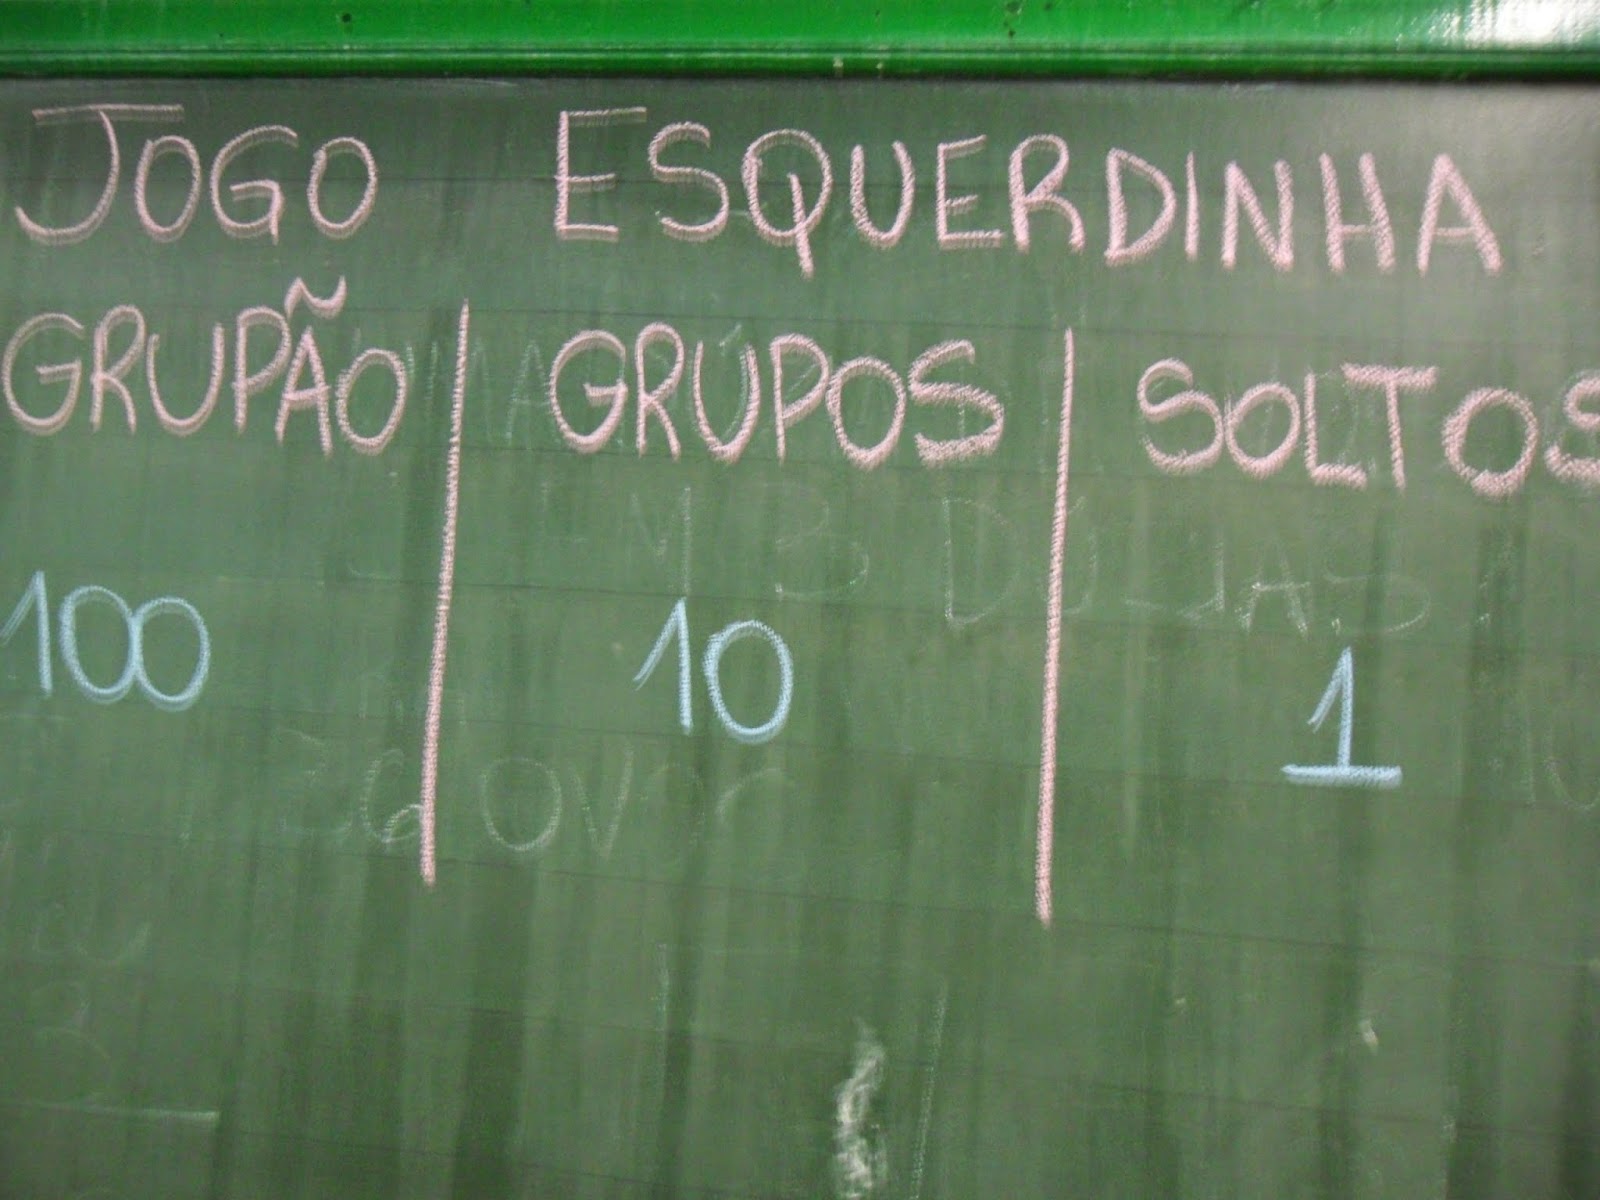 JOGO ESQUERDINHA
GRUPÃO GRUPOS SOLTOS
100 10 1